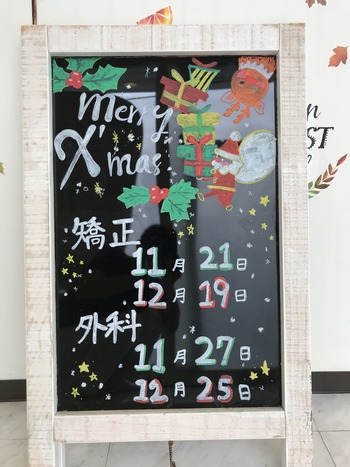 merry
X'mas
矯正
11月21日
12月19日
外科
11月27日
12月25日